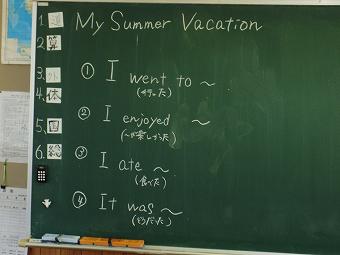 My Summer Vacation
① I went to ～
(行った)
② I enjoyed ～
(～が楽しかった)
③ I ate ～
(食べた)
④ It was ～
1.
2. 算
3. 外
4. 体
5. 国
6. 総